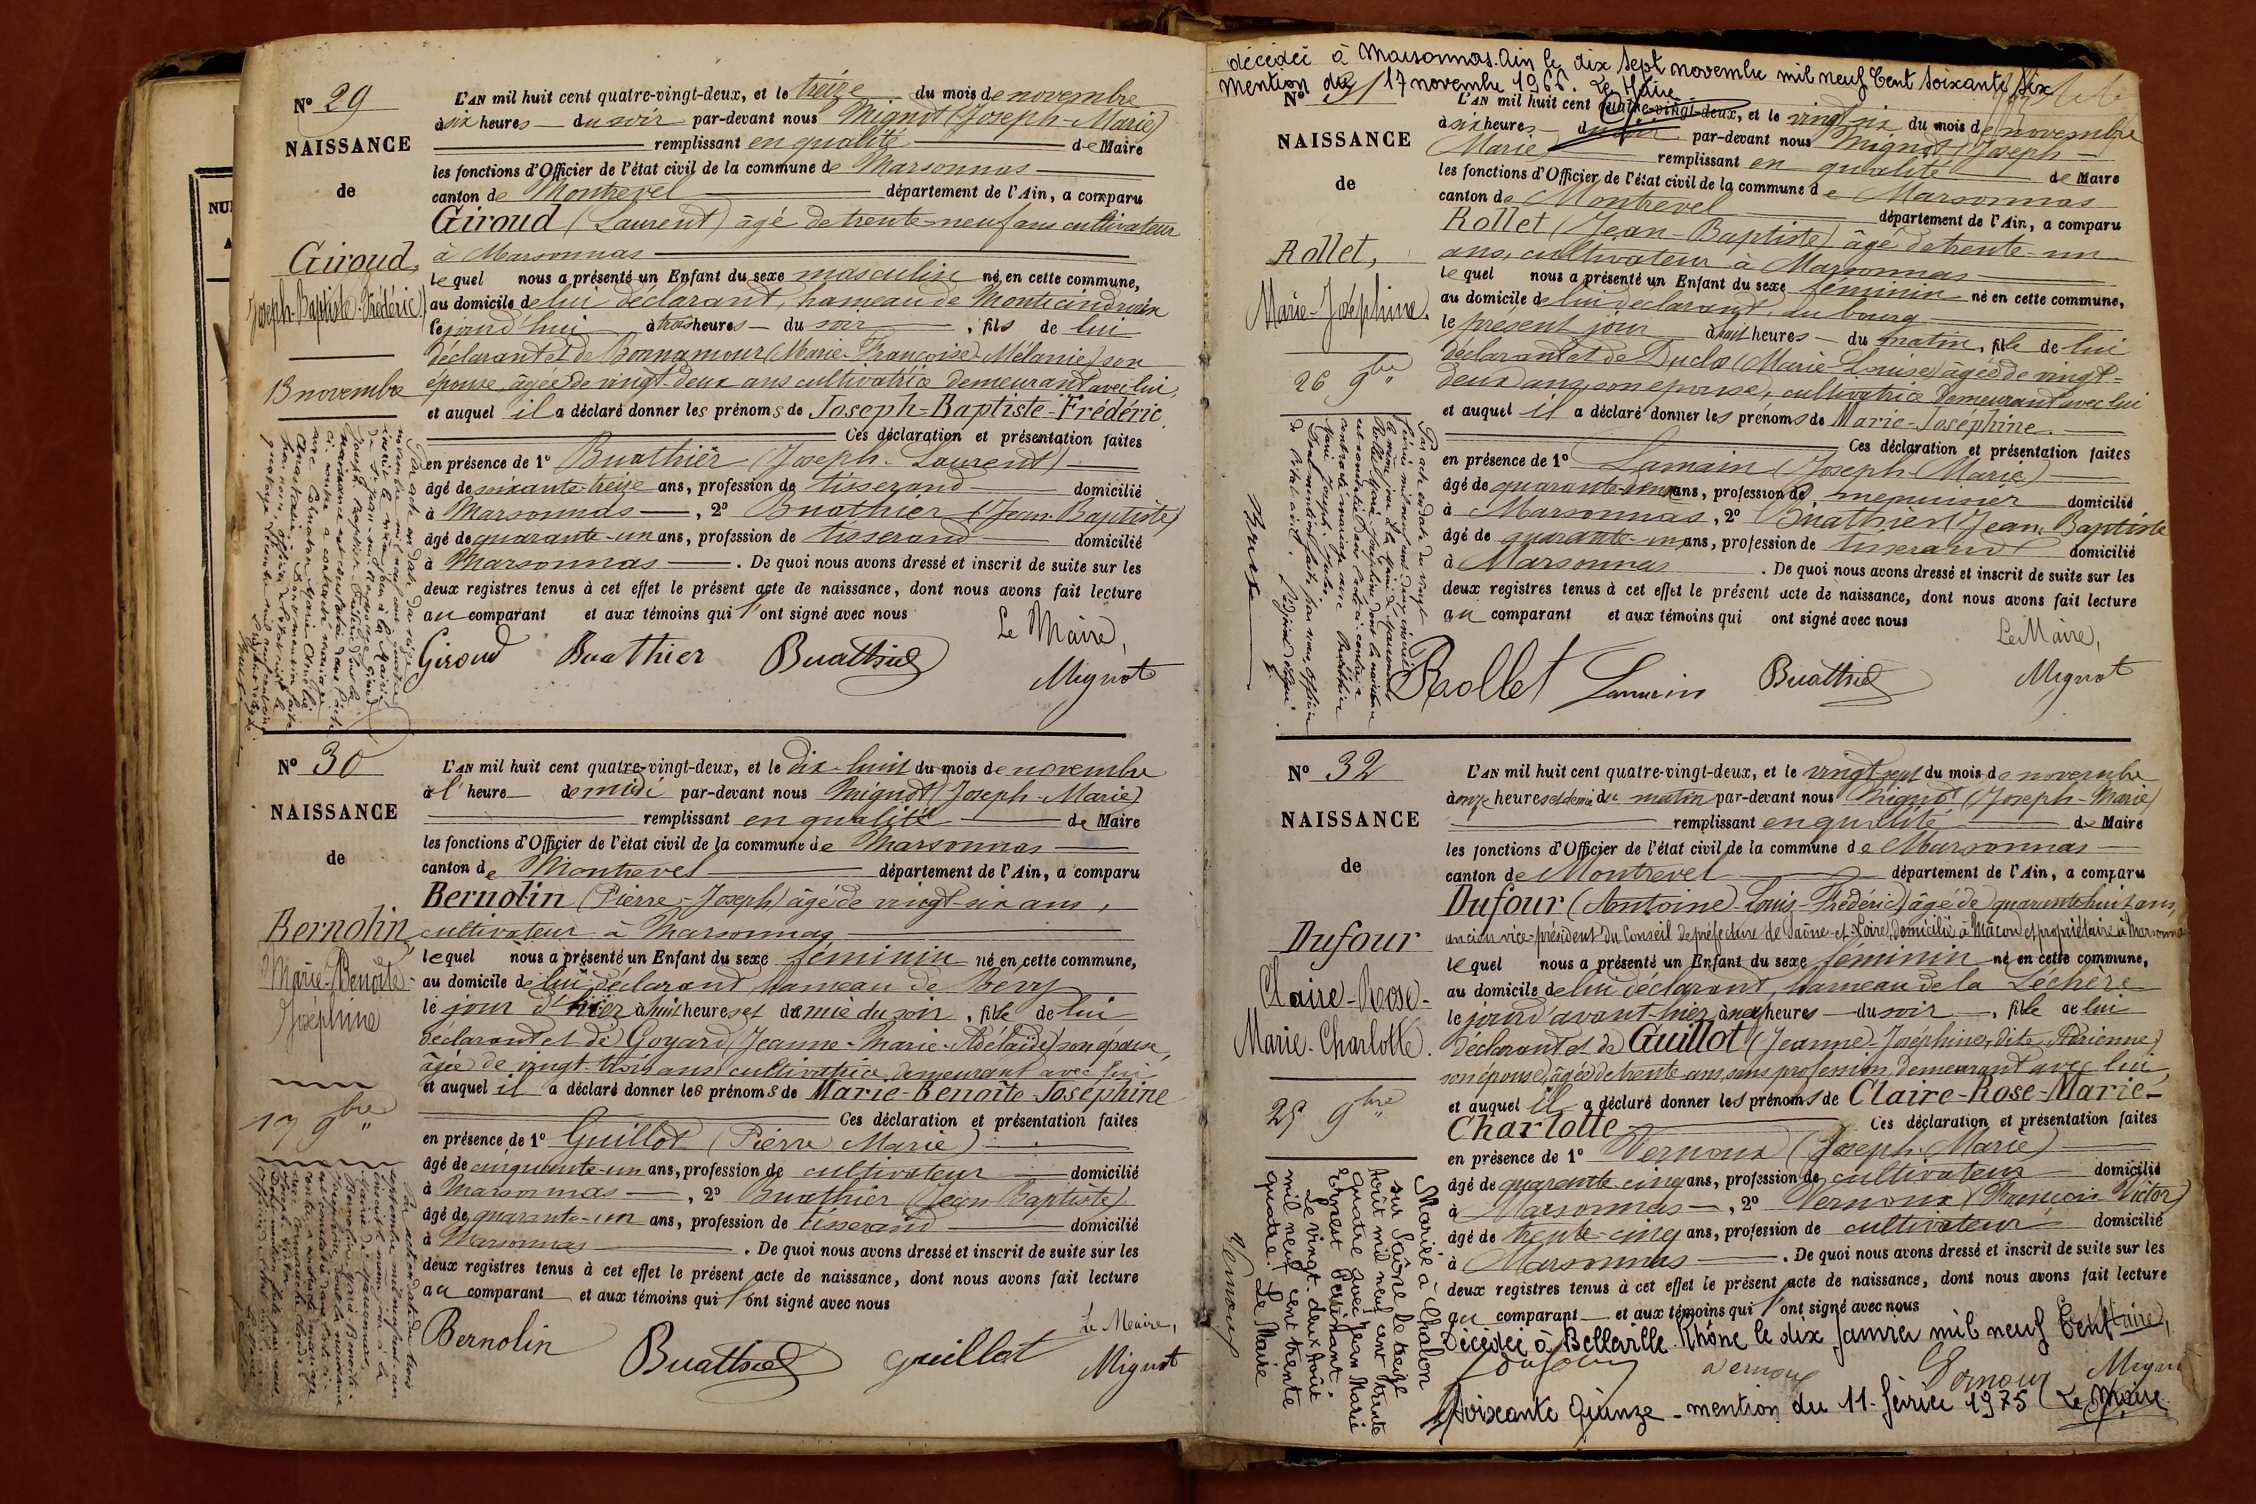 N° 29
NAISSANCE
de
Giroud,
Joseph-Baptiste-Frédéric
13 novembre
L'AN mil huit cent quatre-vingt-deux, et le treize du mois de novembre
à six heures du soir par-devant nous Mignot (Joseph-Marie)
remplissant en qualité de Maire
les fonctions d'Officier de l'état civil de la commune de Marsonnas
canton de Montrevel département de l'Ain, a comparu
Giroud (Laurent) âgé de trente-neuf ans cultivateur
à Marsonnas
lequel nous a présenté un Enfant du sexe masculin né en cette commune,
au domicile de lui déclarant, hameau de
le jourd'hui à trois heures du soir, fils de lui
déclarant et de Bonnamour (Marie-Françoise-Mélanie) son
épouse, âgée de vingt-deux ans cultivatrice demeurant avec lui,
et auquel il a déclaré donner les prénoms de Joseph-Baptiste-Frédéric.
Ces déclaration et présentation faites
en présence de 1° Buathier (Joseph-Laurent)
âgé de soixante-treize ans, profession de tisserand domicilié
à Marsonnas, 2° Buathier (Jean-Baptiste)
âgé de quarante-un ans, profession de tisserand domicilié
à Marsonnas. De quoi nous avons dressé et inscrit de suite sur les
deux registres tenus à cet effet le présent acte de naissance, dont nous avons fait lecture
au comparant et aux témoins qui l'ont signé avec nous
Le Maire,
Giroud Buathier Buathier Mignot
N° 30
NAISSANCE
de
Bernolin,
Marie-Benoîte-
Joséphine
17 9bre
L'AN mil huit cent quatre-vingt-deux, et le dix-huit du mois de novembre
à l'heure de midi par-devant nous Mignot (Joseph-Marie)
remplissant en qualité de Maire
les fonctions d'Officier de l'état civil de la commune de Marsonnas
canton de Montrevel département de l'Ain, a comparu
Bernolin (Pierre-Joseph) âgé de vingt-six ans,
cultivateur à Marsonnas
lequel nous a présenté un Enfant du sexe féminin né en cette commune,
au domicile de lui déclarant, hameau de Berry
le jour d'hier à huit heures et demie du soir, fille de lui
déclarant et de Goyard (Jeanne-Marie-Adélaïde) son épouse,
âgée de vingt-trois ans cultivatrice demeurant avec lui
et auquel il a déclaré donner les prénoms de Marie-Benoîte-Joséphine
Ces déclaration et présentation faites
en présence de 1° Guillot (Pierre Marie)
âgé de cinquante-un ans, profession de cultivateur domicilié
à Marsonnas, 2° Buathier (Jean-Baptiste)
âgé de quarante-un ans, profession de tisserand domicilié
à Marsonnas. De quoi nous avons dressé et inscrit de suite sur les
deux registres tenus à cet effet le présent acte de naissance, dont nous avons fait lecture
au comparant et aux témoins qui l'ont signé avec nous
Le Maire,
Bernolin Buathier Guillot Mignot
décédée à Marsonnas. Ain le dix sept novembre mil neuf Cent soixante six
Mention du 17 novembre 1966. Le Maire
N° 31
NAISSANCE
de
Rollet,
Marie-Joséphine.
26 9bre
L'AN mil huit cent quatre-vingt-deux, et le vingt six du mois de novembre
à six heures du soir par-devant nous Mignot Joseph-
Marie remplissant en qualité de Maire
les fonctions d'Officier de l'état civil de la commune de Marsonnas
canton de Montrevel département de l'Ain, a comparu
Rollet (Jean-Baptiste) âgé de trente-un
ans, cultivateur à Marsonnas
lequel nous a présenté un Enfant du sexe féminin né en cette commune,
au domicile de lui déclarant, au bourg
le présent jour à huit heures du matin, fille de lui
déclarant et de Duclo (Marie-Louise) âgée de vingt-
deux ans, son épouse, cultivatrice demeurant avec lui
et auquel il a déclaré donner les prénoms de Marie-Joséphine.
Ces déclaration et présentation faites
en présence de 1° Lamain (Joseph-Marie)
âgé de quarante-cinq ans, profession de menuisier domicilié
à Marsonnas, 2° Buathier (Jean-Baptiste
âgé de quarante-un ans, profession de tisserand domicilié
à Marsonnas. De quoi nous avons dressé et inscrit de suite sur les
deux registres tenus à cet effet le présent acte de naissance, dont nous avons fait lecture
au comparant et aux témoins qui ont signé avec nous
Le Maire,
Rollet Lamain Buathier Mignot
N° 32
NAISSANCE
de
Dufour
Claire-Rose-
Marie-Charlotte.
25 9bre
Mariée à Chalon
sur Saône le treize
Août mil neuf cent trente
quatre avec Jean Marie
Ernest
Le vingt-deux Août
mil neuf cent trente
quatre. Le Maire
Vernoux
L'AN mil huit cent quatre-vingt-deux, et le vingt sept du mois de novembre
à onze heures et demie du matin par-devant nous Mignot (Joseph-Marie)
remplissant en qualité de Maire
les fonctions d'Officier de l'état civil de la commune de Marsonnas
canton de Montrevel département de l'Ain, a comparu
Dufour (Antoine-Louis-Frédéric) âgé de quarante huit ans,
ancien vice-président du Conseil de préfecture de Saône-et-Loire, domicilié à Mâcon et propriétaire à Marsonnas
lequel nous a présenté un Enfant du sexe féminin né en cette commune,
au domicile de lui déclarant, hameau de la Léchère
le jour d'avant-hier, à neuf heures du soir, fille de lui
déclarant et de Guillot (Jeanne-Joséphine, dite Adrienne)
son épouse, âgée de trente ans, sans profession, demeurant avec lui,
et auquel il a déclaré donner les prénoms de Claire-Rose-Marie-
Charlotte Ces déclaration et présentation faites
en présence de 1° Vernoux (Joseph-Marie)
âgé de quarante-cinq ans, profession de cultivateur domicilié
à Marsonnas, 2° Vernoux (François Victor)
âgé de trente-cinq ans, profession de cultivateur domicilié
à Marsonnas. De quoi nous avons dressé et inscrit de suite sur les
deux registres tenus à cet effet le présent acte de naissance, dont nous avons fait lecture
au comparant et aux témoins qui l'ont signé avec nous
Le Maire,
Décédée à Belleville. Rhône le dix Janvier mil neuf Cent
Dufour Vernoux Vernoux Mignot
Soixante Quinze - mention du 11 février 1975 Le Maire